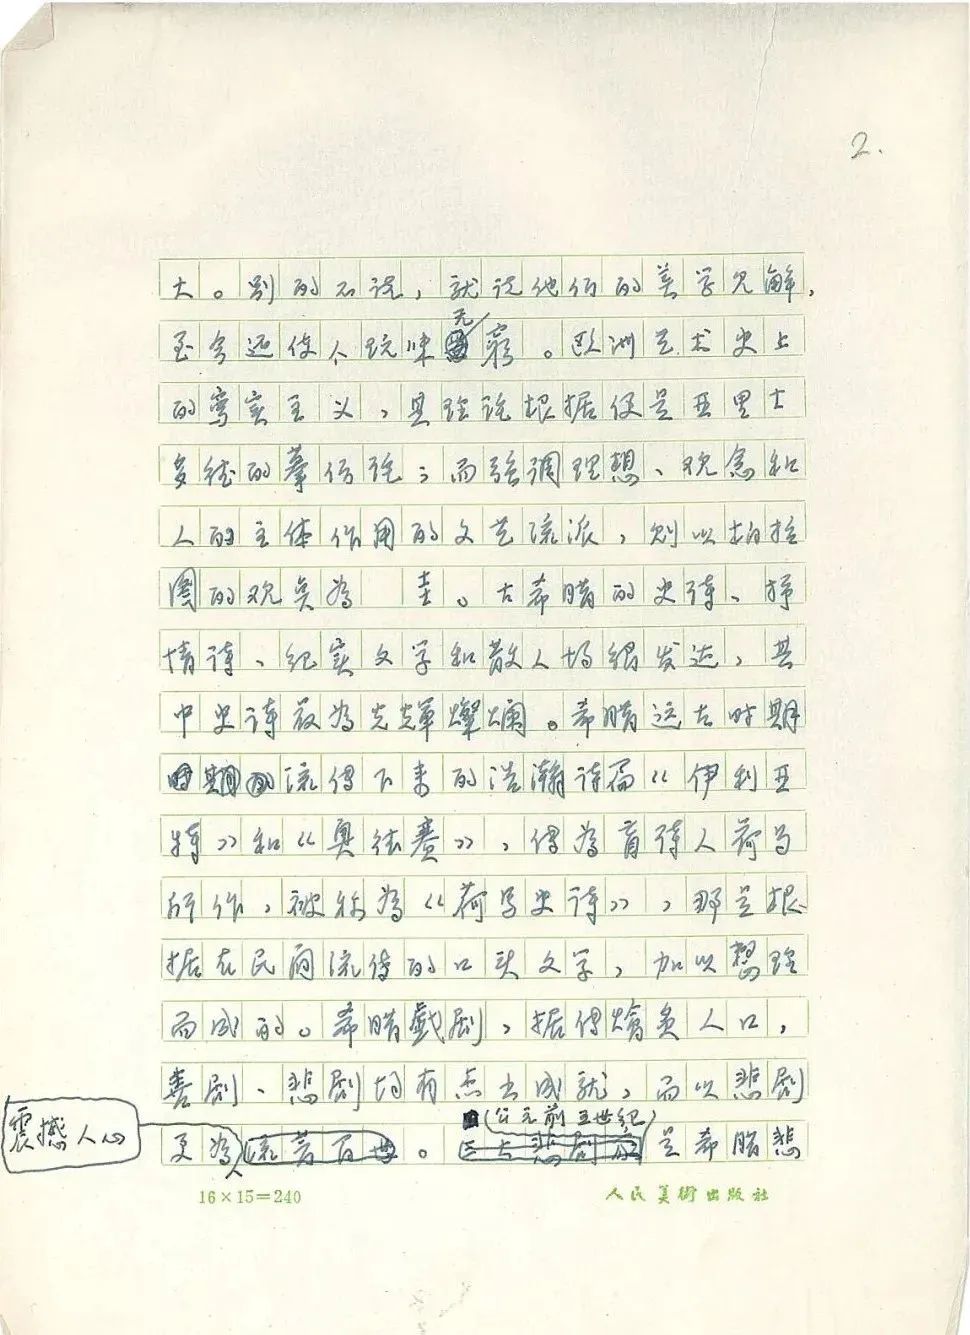 2.
大。别的不说，就说他们的美学见解，
至今还使人玩味无穷。欧洲艺术史上
的写实主义，其理论根据便是亚里士
多德的摹仿论；而强调理想、观念和
人的主体作用的文艺流派，则以柏拉
图的观点为 圭。古希腊的史诗、抒
情诗、纪实文学和散文均很发达，其
中史诗最为光辉灿烂。希腊远古时期
时期的流传下来的浩瀚诗篇《伊利亚
特》和《奥德赛》，传为盲诗人荷马
所作，被称为《荷马史诗》，那是根
据在民间流传的口头文学，加以整理
而成的。希腊戏剧，据传脍炙人口，
喜剧、悲剧均有杰出成就，而以悲剧
(公元前五世纪)
震撼人心
更为流芳百世。是希腊悲
16×15=240 人民美術出版社